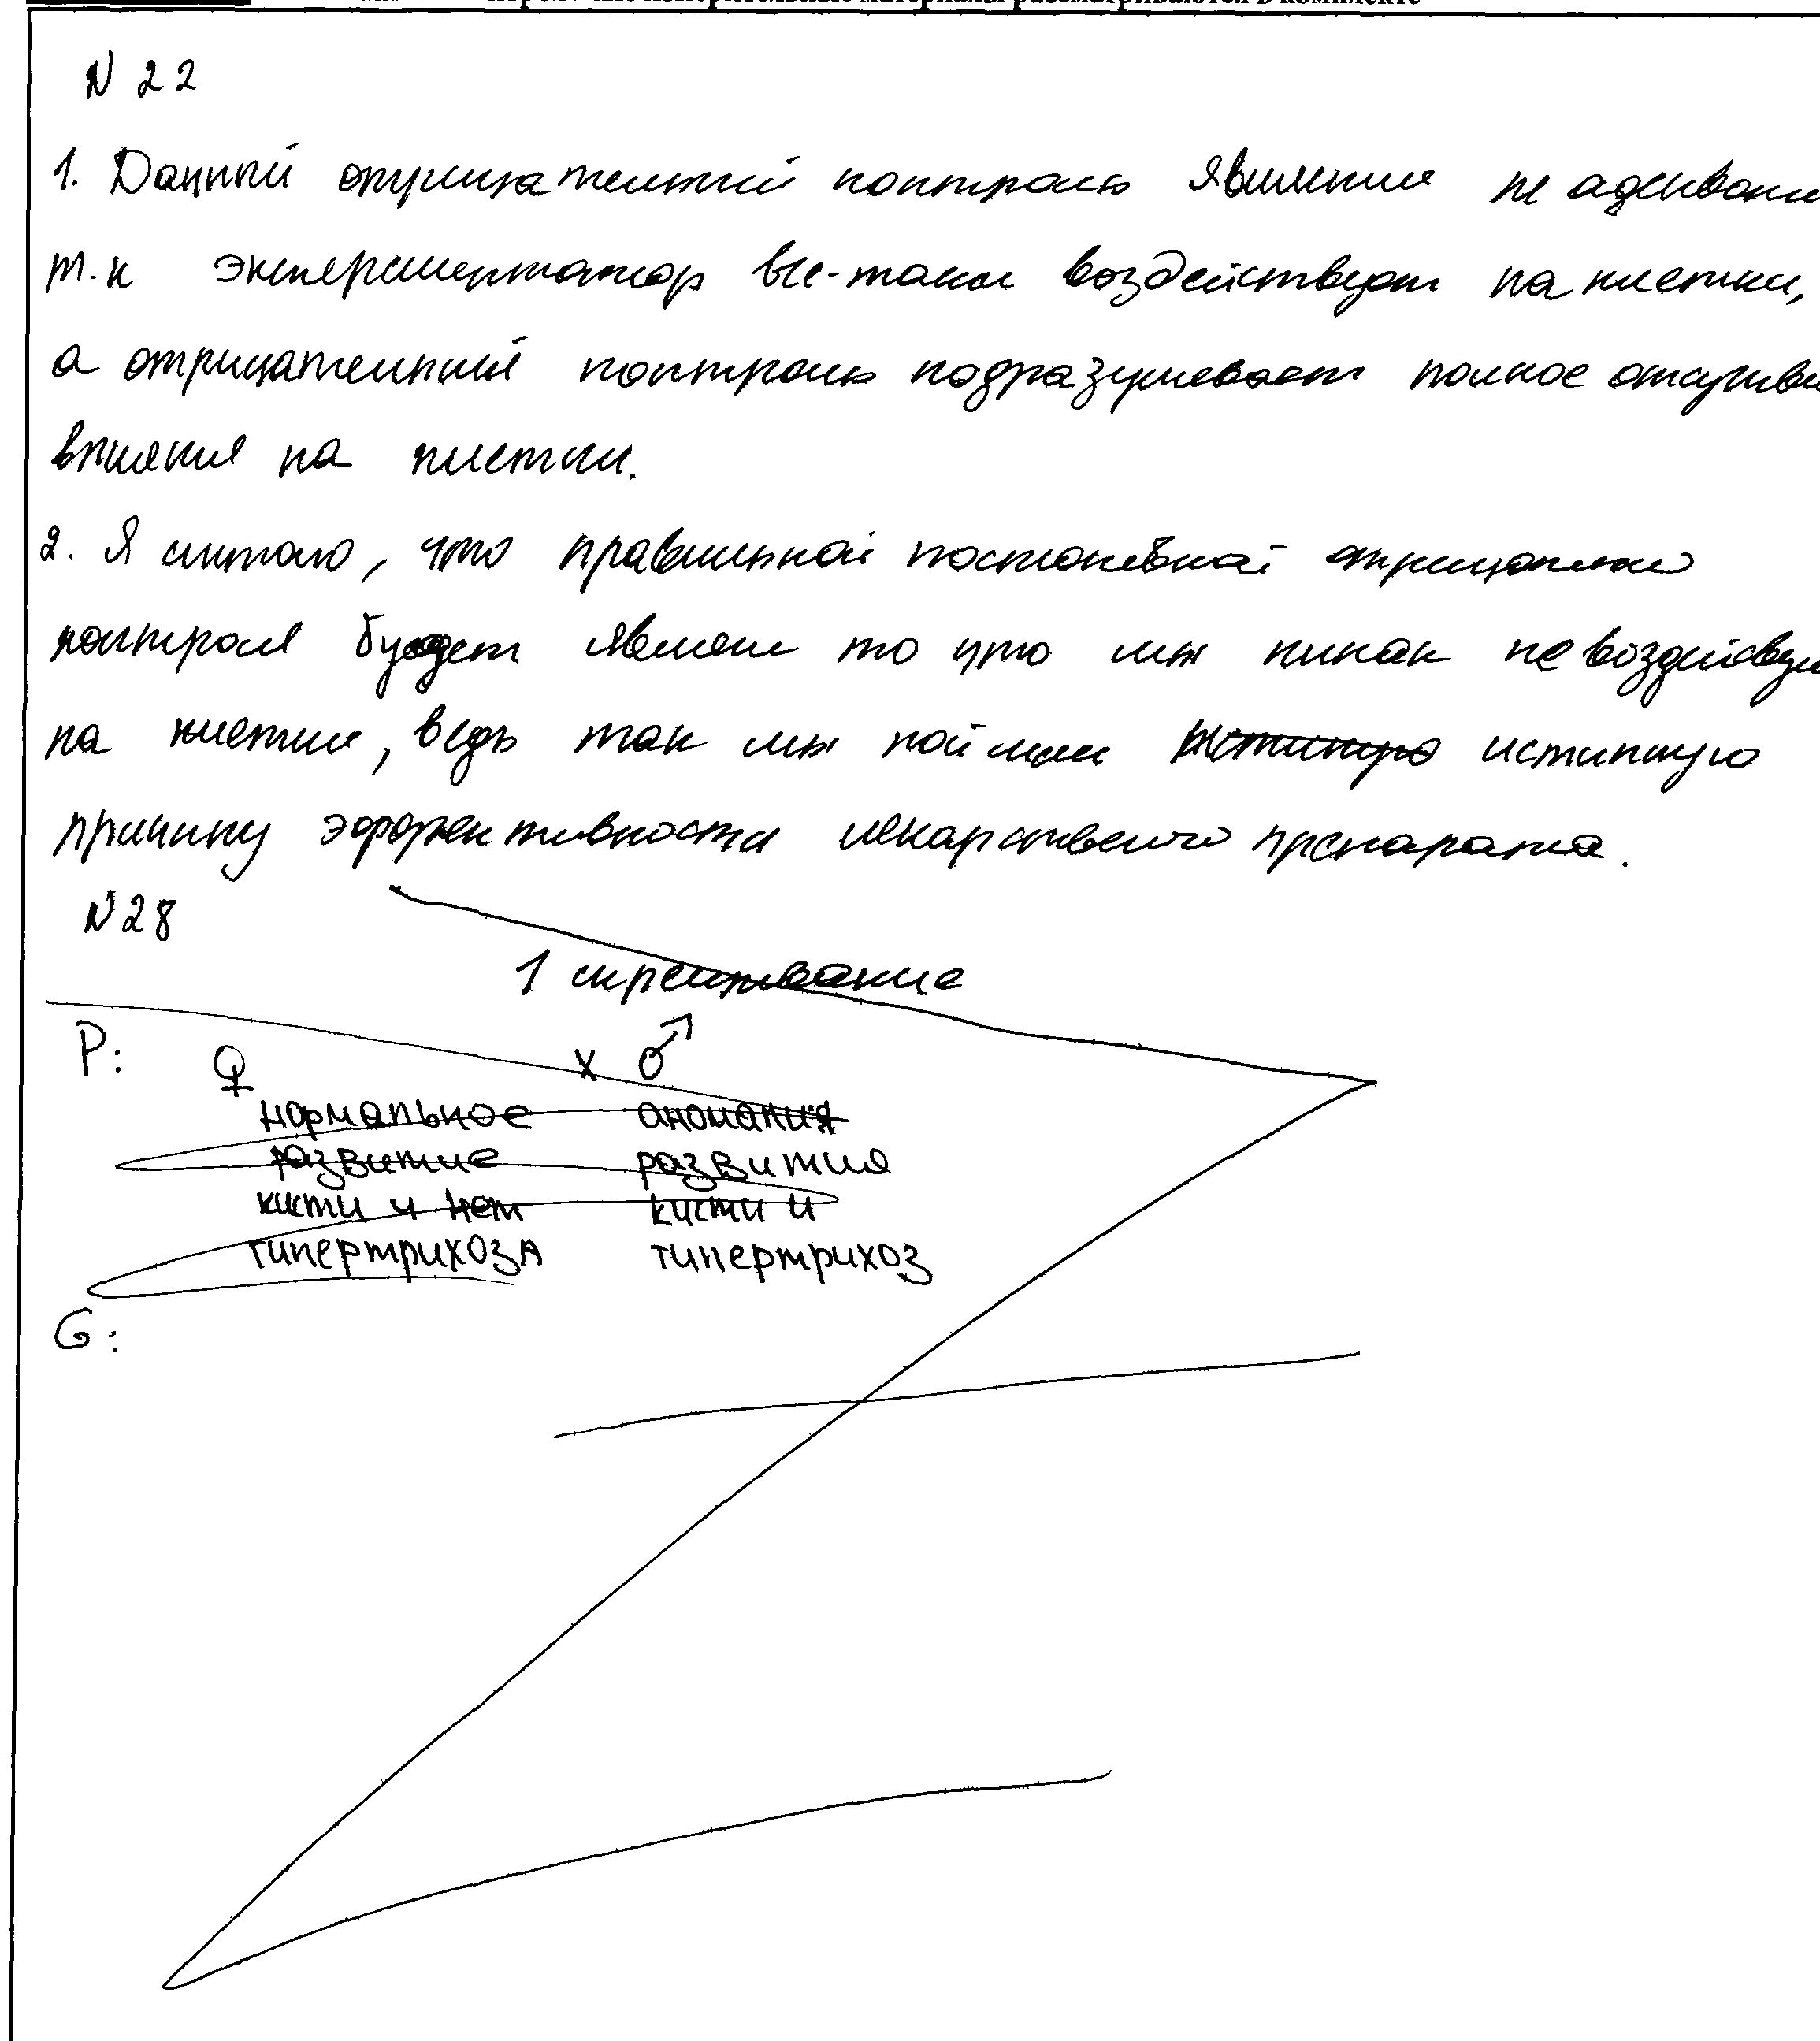 материалы рассматриваются в комплекте
N 22
1. Данный отрицательный контроль является не адекват
т.к экспериментатор все-таки воздействует на клетки,
а отрицательный контроль подразумевает полное отсутстви
влияния на клетки.
2. Я считаю, что правильной постановкой отрицательно
контроля будет являться то что мы никак не воздействуе
на клетки, ведь так мы поймем истинную
причину эффективности лекарственного препарата.
N 28
1 скрещивание
P: ♀ x ♂
нормальное аномалия
развитие развития
кисти и нет кисти и
гипертрихоза гипертрихоз
G: